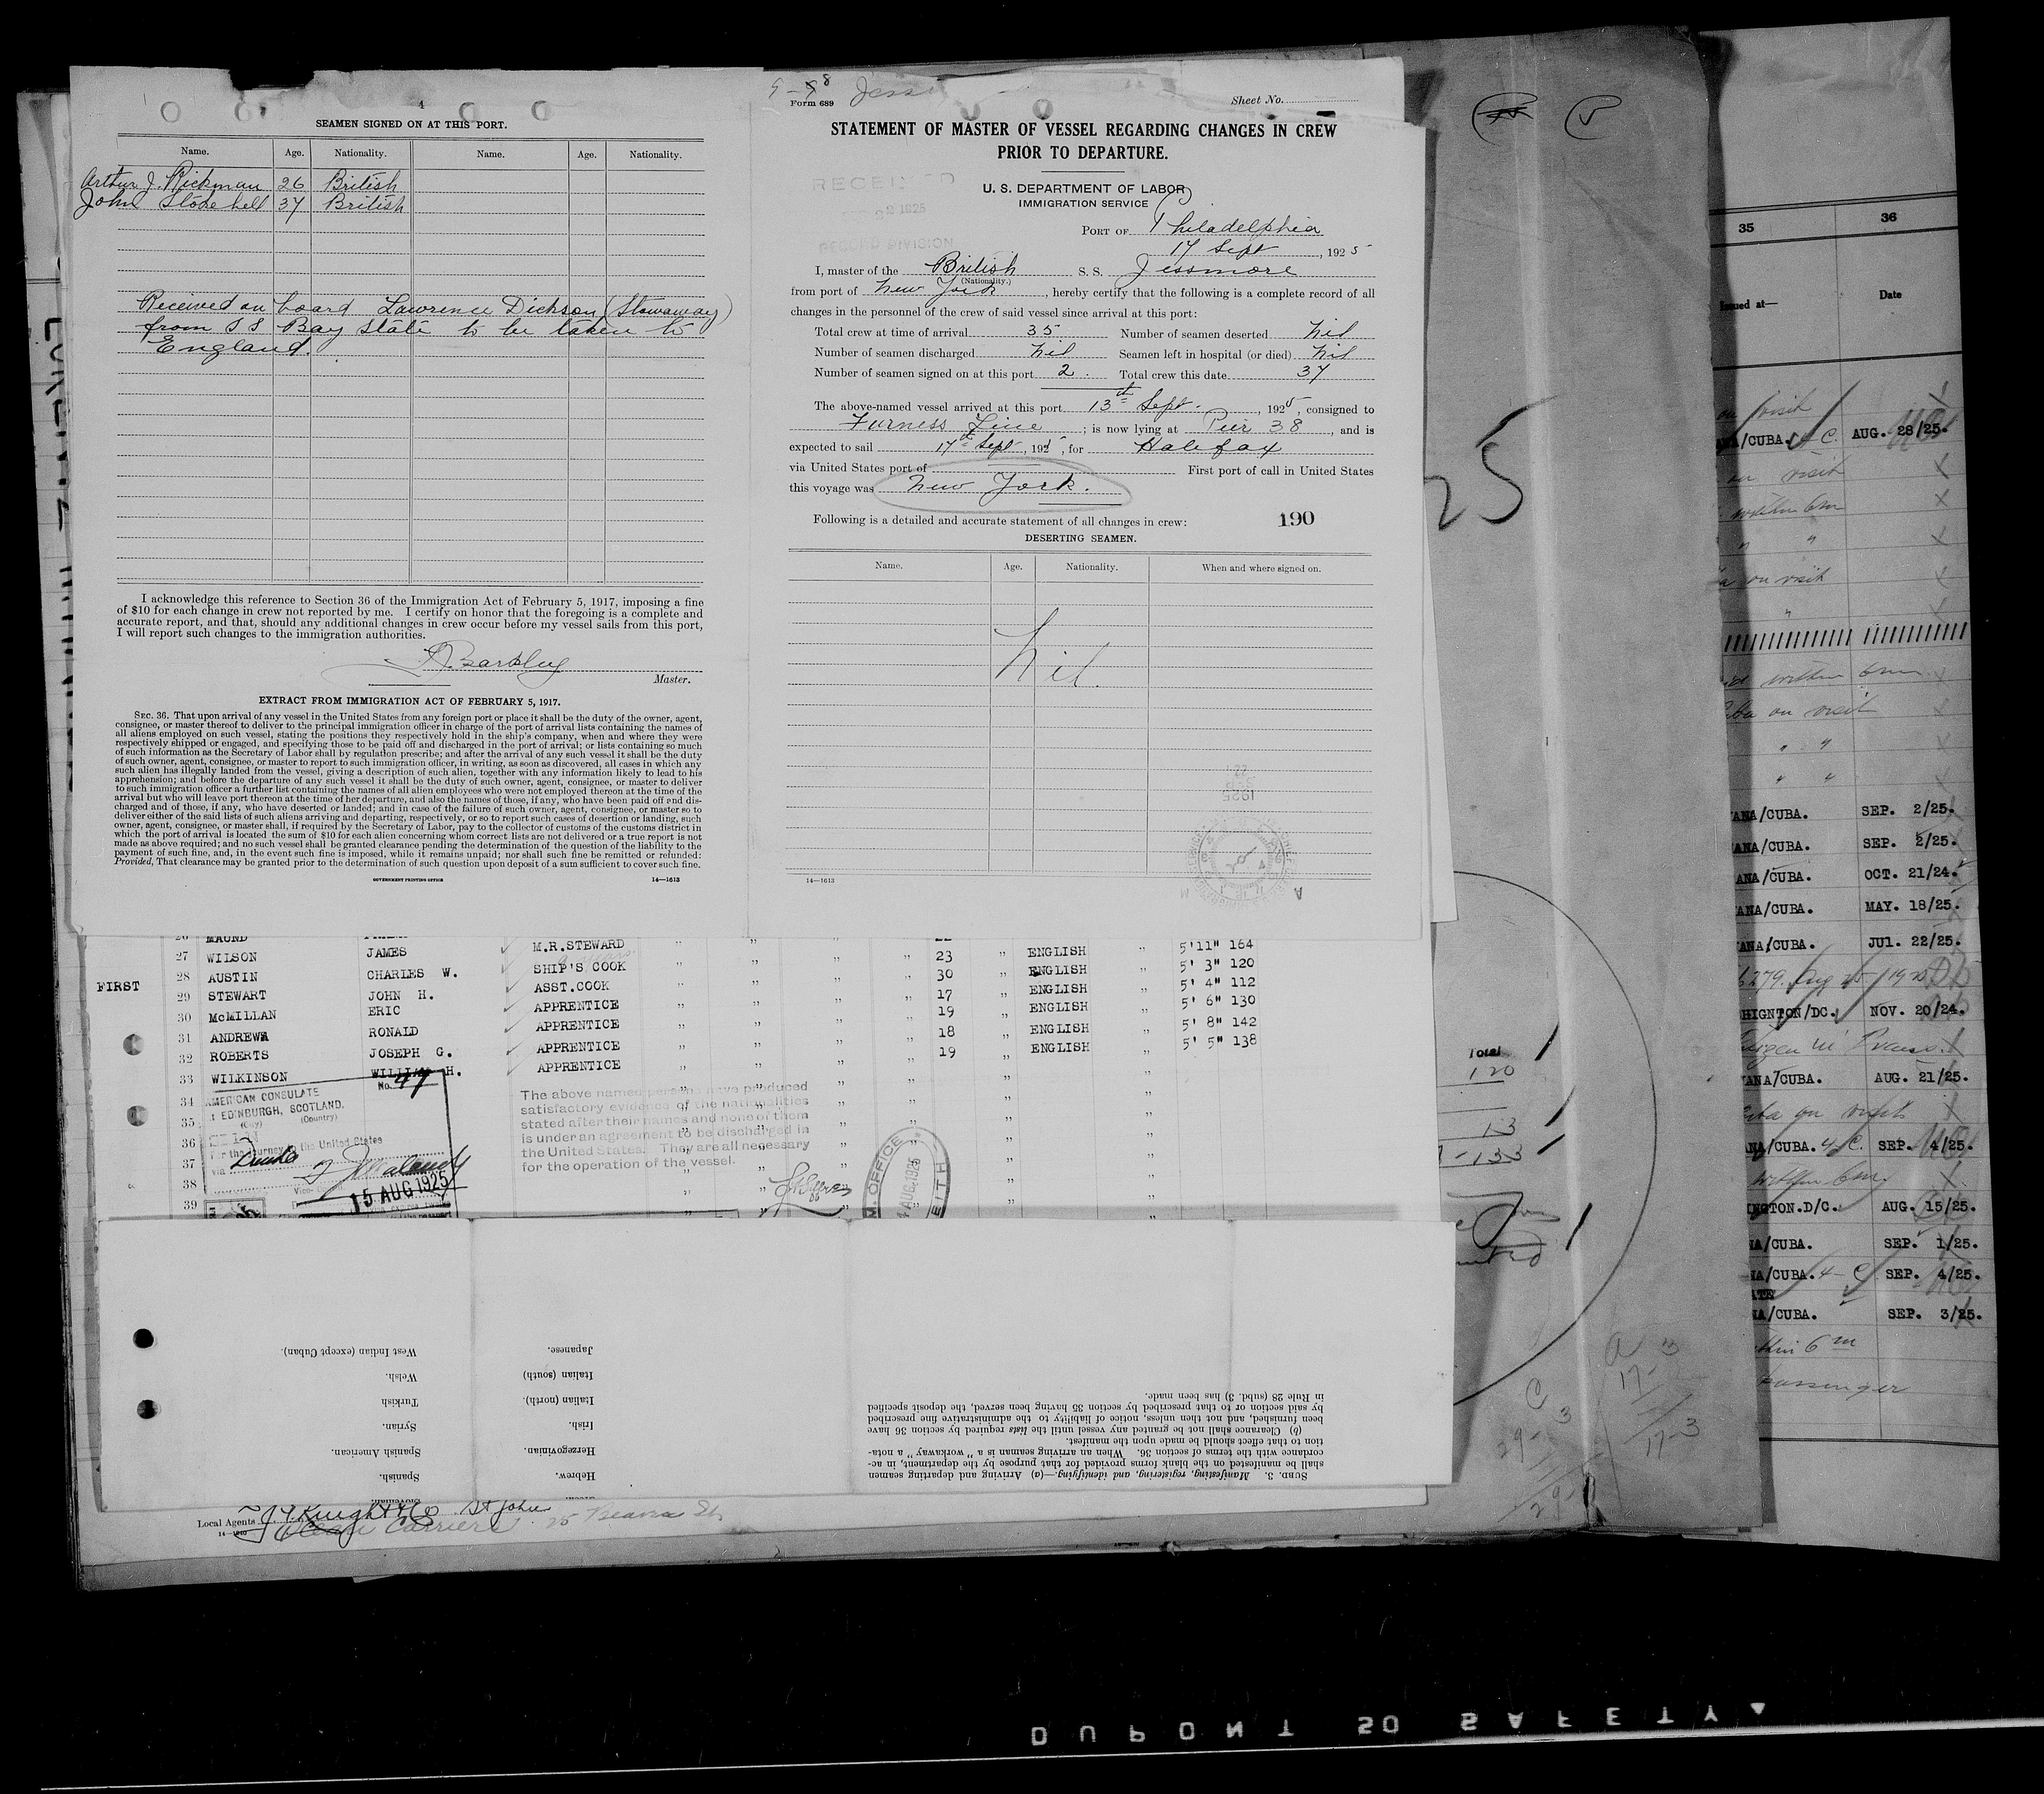 4
SEAMEN SIGNED ON AT THIS PORT.
Name. Age. Nationality. Name. Age. Nationality.
Arthur J. Rickman 26 British
John Stonehell 37 British
Received on board Lawrence Dickson (Stowaway)
from SS Bay State to be taken to
England.
I acknowledge this reference to Section 36 of the Immigration Act of February 5, 1917, imposing a fine
of $10 for each change in crew not reported by me. I certify on honor that the foregoing is a complete and
accurate report, and that, should any additional changes in crew occur before my vessel sails from this port,
I will report such changes to the immigration authorities.
Barkley
Master.
EXTRACT FROM IMMIGRATION ACT OF FEBRUARY 5, 1917.
SEC. 36. That upon arrival of any vessel in the United States from any foreign port or place it shall be the duty of the owner, agent,
consignee, or master thereof to deliver to the principal immigration officer in charge of the port of arrival lists containing the names of
all aliens employed on such vessel, stating the positions they respectively hold in the ship's company, when and where they were
respectively shipped or engaged, and specifying those to be paid off and discharged in the port of arrival; or lists containing so much
of such information as the Secretary of Labor shall by regulation prescribe; and after the arrival of any such vessel it shall be the duty
of such owner, agent, consignee, or master to report to such immigration officer, in writing, as soon as discovered, all cases in which any
such alien has illegally landed from the vessel, giving a description of such alien, together with any information likely to lead to his
apprehension; and before the departure of any such vessel it shall be the duty of such owner, agent, consignee, or master to deliver
to such immigration officer a further list containing the names of all alien employees who were not employed thereon at the time of the
arrival but who will leave port thereon at the time of her departure, and also the names of those, if any, who have been paid off and dis-
charged and of those, if any, who have deserted or landed; and in case of the failure of such owner, agent, consignee, or master so to
deliver either of the said lists of such aliens arriving and departing, respectively, or so to report such cases of desertion or landing, such
owner, agent, consignee, or master shall, if required by the Secretary of Labor, pay to the collector of customs of the customs district in
which the port of arrival is located the sum of $10 for each alien concerning whom correct lists are not delivered or a true report is not
made as above required; and no such vessel shall be granted clearance pending the determination of the question of the liability to the
payment of such fine, and, in the event such fine is imposed, while it remains unpaid; nor shall such fine be remitted or refunded:
Provided, That clearance may be granted prior to the determination of such question upon deposit of a sum sufficient to cover such fine.
GOVERNMENT PRINTING OFFICE 14—1613
Form 689 Sheet No.
STATEMENT OF MASTER OF VESSEL REGARDING CHANGES IN CREW
PRIOR TO DEPARTURE.
RECEIVED
1925
RECORD DIVISION
U. S. DEPARTMENT OF LABOR
IMMIGRATION SERVICE
PORT OF Philadelphia
17 Sept, 1925
I, master of the British S. S. Jessmore
(Nationality.)
from port of New York, hereby certify that the following is a complete record of all
changes in the personnel of the crew of said vessel since arrival at this port:
Total crew at time of arrival 35 Number of seamen deserted Nil
Number of seamen discharged Nil Seamen left in hospital (or died) Nil
Number of seamen signed on at this port 2. Total crew this date 37
The above-named vessel arrived at this port 13th Sept., 1925, consigned to
Furness Line; is now lying at Pier 38, and is
expected to sail 17th Sept, 1925, for Halifax
via United States port of First port of call in United States
this voyage was New York.
Following is a detailed and accurate statement of all changes in crew: 190
DESERTING SEAMEN.
Name. Age. Nationality. When and where signed on.
Nil.
14—1613
26 MAUND
27 WILSON JAMES M.R.STEWARD " " " " 23 " ENGLISH " 5'11" 164
28 AUSTIN CHARLES W. SHIP'S COOK " " " " 30 ENGLISH " 5' 3" 120
FIRST 29 STEWART JOHN H. ASST.COOK " " " " 17 " ENGLISH " 5' 4" 112
30 McMILLAN ERIC APPRENTICE " " " " 19 " ENGLISH " 5' 6" 130
31 ANDREWA RONALD APPRENTICE " " " " 18 " ENGLISH " 5' 8" 142
32 ROBERTS JOSEPH G. APPRENTICE " " " " 19 " ENGLISH " 5' 5" 138
33 WILKINSON WILLIAM H. APPRENTICE
34
35
36
37
38
39
No. 47
AMERICAN CONSULATE
at EDINBURGH, SCOTLAND.
(City) (Country)
SEEN
For the journey to the United States
via Dundee
15 AUG 1925
The above named persons have produced
satisfactory evidence of the nationalities
stated after their names and none of them
is under an agreement to be discharged in
the United States. They are all necessary
for the operation of the vessel.
M. OFFICE
AUG.1925
LEITH
West Indian (except Cuban).
Welsh.
Turkish
Syrian.
Spanish American.
Spanish.
Slovenian.
Japanese.
Italian (south)
Italian (north).
Irish.
Herzegovinian.
Hebrew.
SUBD. 3. Manifesting, registering, and identifying.—(a) Arriving and departing seamen
shall be manifested on the blank forms provided for that purpose by the department, in ac-
cordance with the terms of section 36. When an arriving seaman is a "workaway" a nota-
tion to that effect should be made upon the manifest.
(b) Clearance shall not be granted any vessel until the lists required by section 36 have
been furnished, and not then unless, notice of liability to the administrative fine prescribed
by said section or to that prescribed by section 35 having been served, the deposit specified
in Rule 28 (subd. 3) has been made.
Local Agents J. T. Knight & Co St John
Ocean Carriers 25 Beaver St.
25
Total
120
13
133
17-3
17-3
35 36
Issued at— Date
on visit
ANA/CUBA. 4-C. AUG. 28/25.
on visit
within 6m
" "
on visit
"
within 6m
Cuba on visit
" "
" "
ANA/CUBA. SEP. 2/25.
ANA/CUBA. SEP. 2/25.
ANA/CUBA. OCT. 21/24.
ANA/CUBA. MAY. 18/25.
ANA/CUBA. JUL. 22/25.
HIGNTON/DC. NOV. 20/24.
ANA/CUBA. AUG. 21/25.
Cuba on visit
NA/CUBA. 4-C. SEP. 4/25.
within 6m
INGTON.D/C. AUG. 15/25.
NA/CUBA. SEP. 1/25.
NA/CUBA. 4-C SEP. 4/25.
NA/CUBA. SEP. 3/25.
within 6m
passenger
DUPONT 50 SAFETY